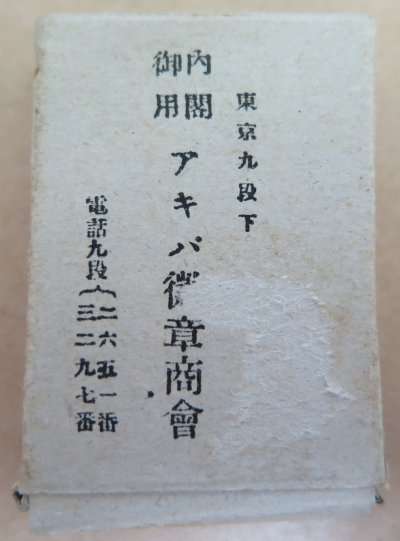 東京九段下
内閣御用
アキバ徽章商會
電話九段(二六五一番
三二九七番